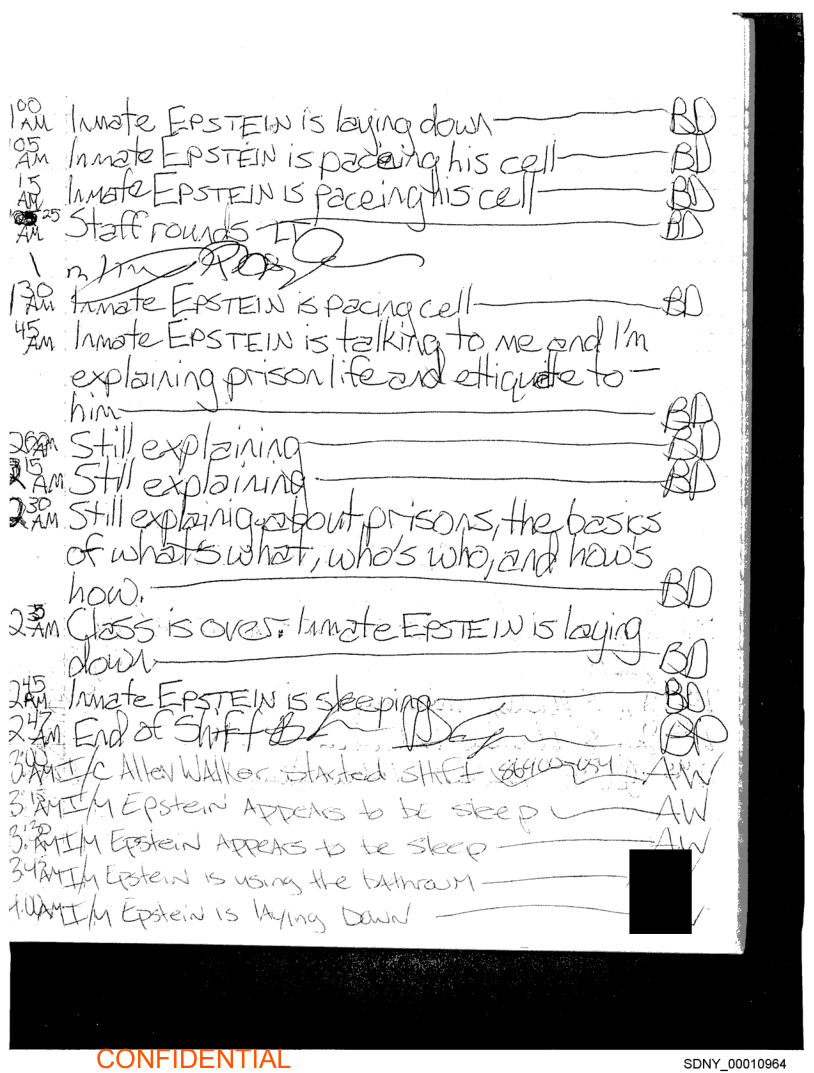 1 00 AM Inmate EPSTEIN is laying down BD
05 AM Inmate EPSTEIN is paceing his cell BD
15 AM Inmate EPSTEIN is paceing his cell BD
25 AM Staff rounds BD
1 30 AM Inmate EPSTEIN is pacing cell BD
45 AM Inmate EPSTEIN is talking to me and I'm
explaining prison life and ettiquite to
him BD
2 00 AM Still explaining BD
15 AM Still explaining BD
2 30 AM Still explainig about prisons, the basics
of what's what, who's who, and how's
how. BD
2 35 AM Class is over. Inmate EPSTEIN is laying
down BD
2 45 AM Inmate EPSTEIN is sleeping BD
2 47 AM End of Shift BD
3:00 AM I/C Allen WAlker stArted shift AW
3:15 AM I/M Epstein AppeArs to be sleep AW
3:30 AM I/M Epstein AppeArs to be sleep AW
3:45 AM I/M Epstein is using the bAthroum
4:00 AM I/M Epstein is lAying Down
CONFIDENTIAL
SDNY_00010964